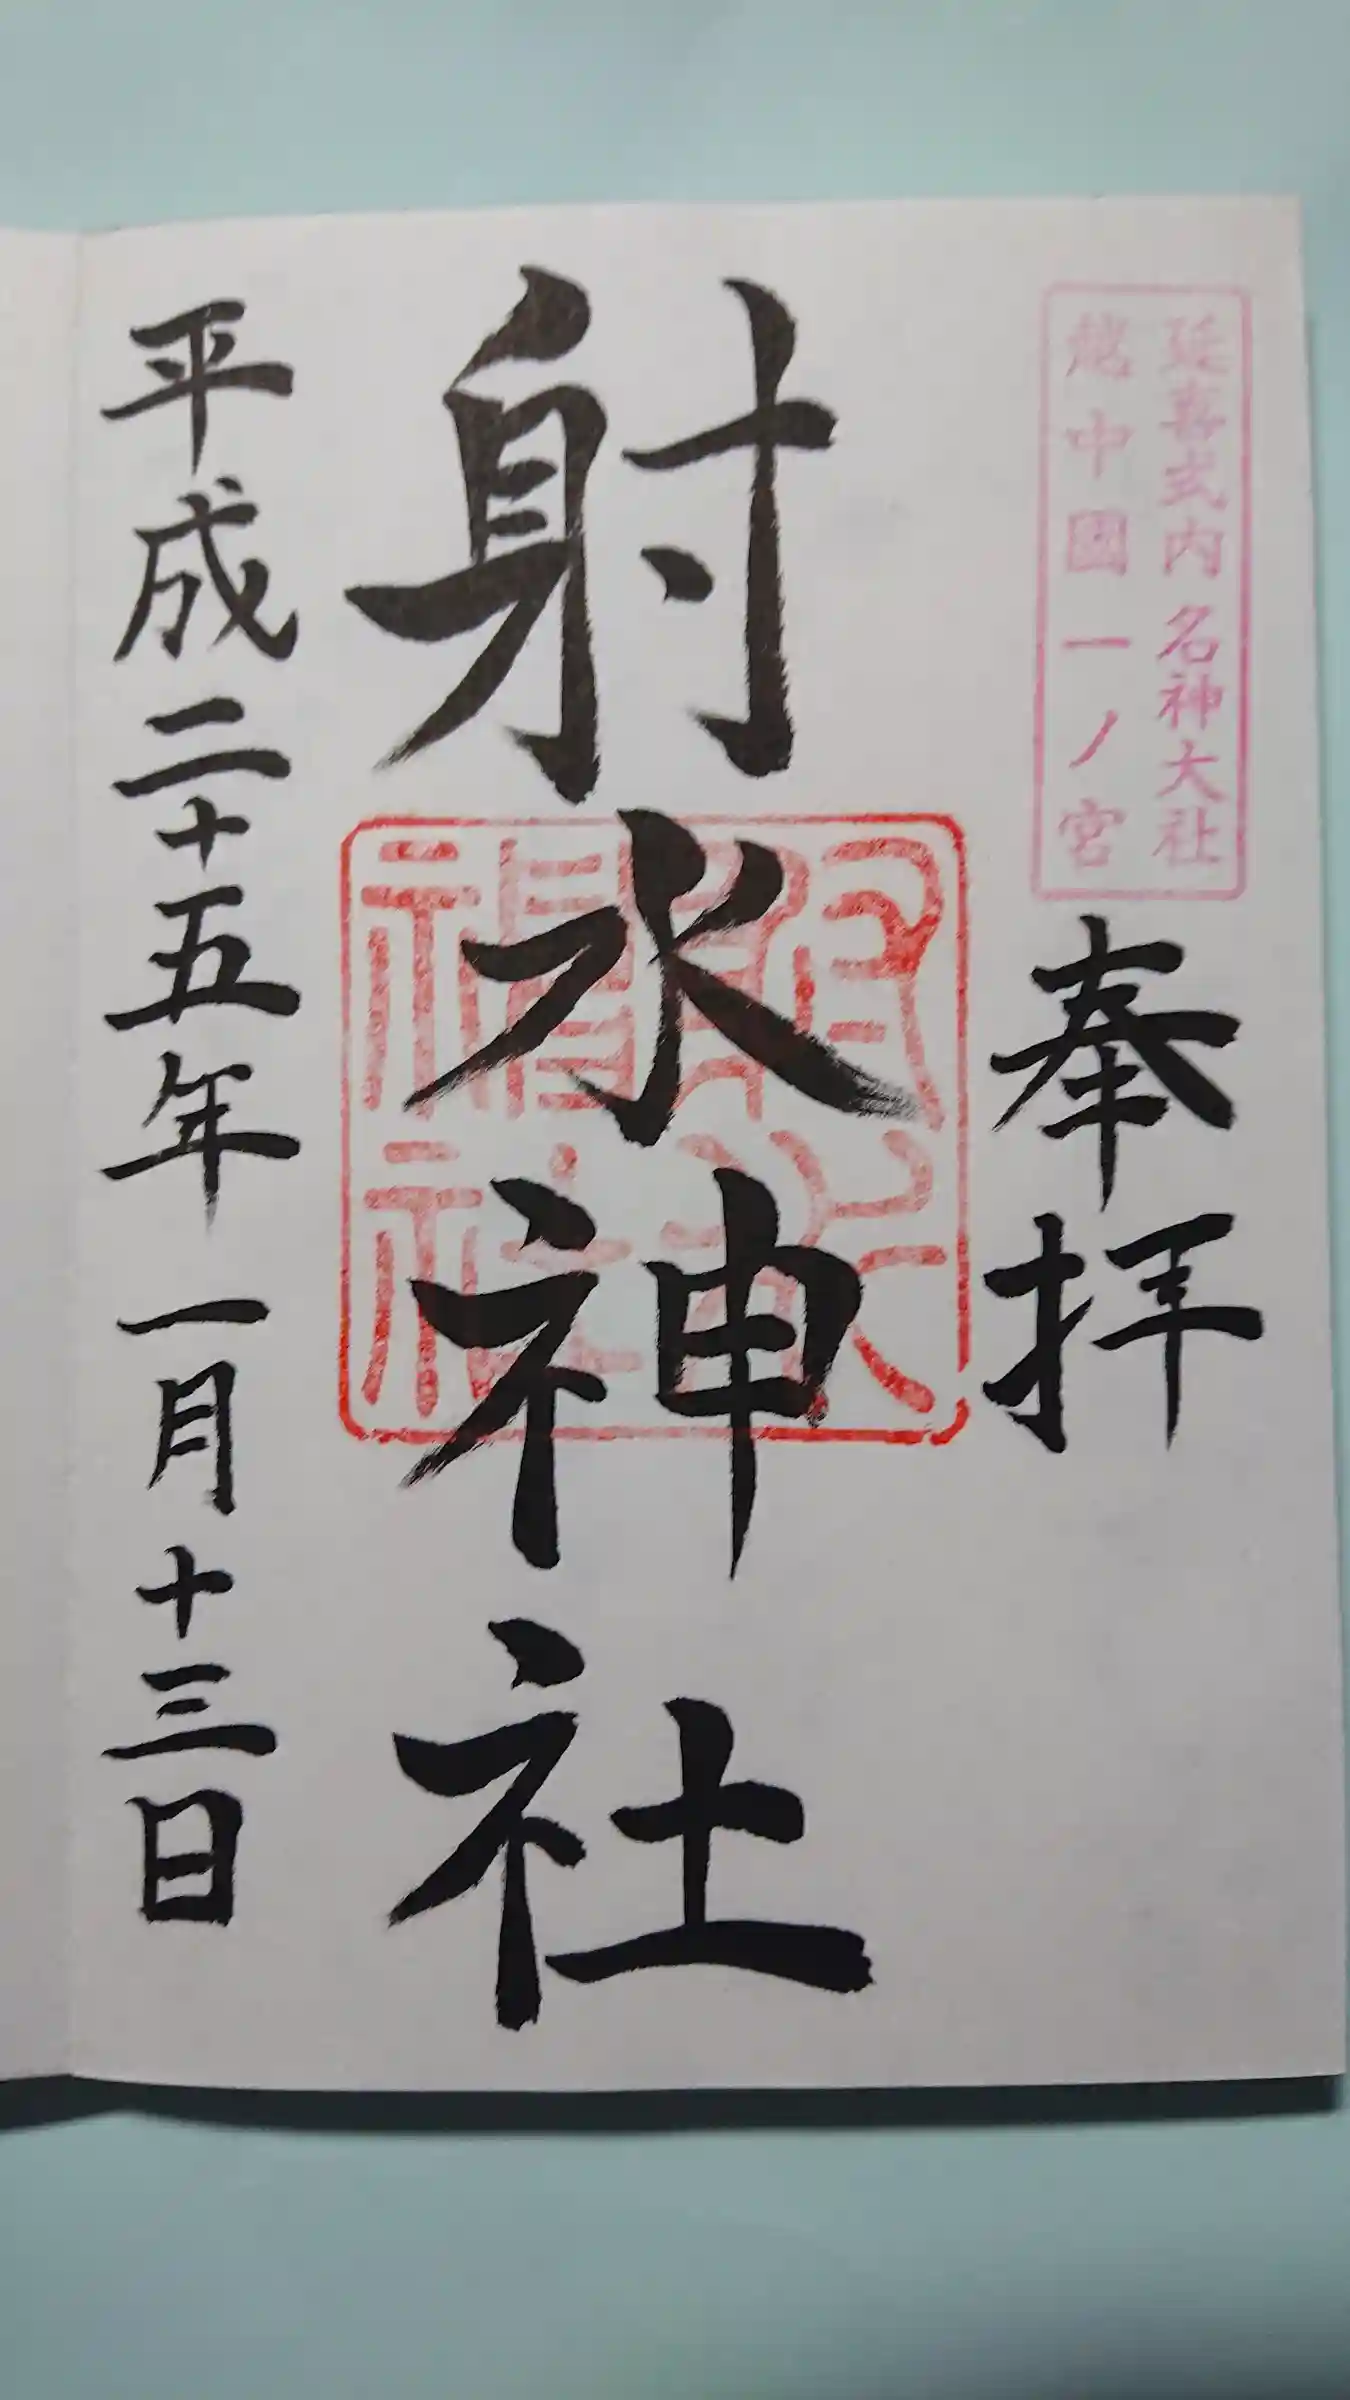 延喜式内名神大社
越中國一ノ宮
奉拝
射水神社
射水神社
平成二十五年一月十三日